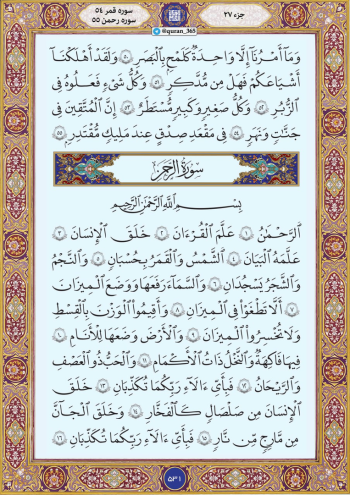 سوره قمر ٥٤
سوره رحمن ٥٥
@quran_365
جزء ٢٧
وَمَآ أَمْرُنَآ إِلَّا وَٰحِدَةٌ كَلَمْحٍۭ بِٱلْبَصَرِ ٥٠ وَلَقَدْ أَهْلَكْنَآ
أَشْيَاعَكُمْ فَهَلْ مِن مُّدَّكِرٍ ٥١ وَكُلُّ شَىْءٍ فَعَلُوهُ فِى
ٱلزُّبُرِ ٥٢ وَكُلُّ صَغِيرٍ وَكَبِيرٍ مُّسْتَطَرٌ ٥٣ إِنَّ ٱلْمُتَّقِينَ فِى
جَنَّٰتٍ وَنَهَرٍ ٥٤ فِى مَقْعَدِ صِدْقٍ عِندَ مَلِيكٍ مُّقْتَدِرٍۭ ٥٥
سورة الرحمن
بِسْمِ ٱللَّهِ ٱلرَّحْمَٰنِ ٱلرَّحِيمِ
ٱلرَّحْمَٰنُ ١ عَلَّمَ ٱلْقُرْءَانَ ٢ خَلَقَ ٱلْإِنسَٰنَ ٣
عَلَّمَهُ ٱلْبَيَانَ ٤ ٱلشَّمْسُ وَٱلْقَمَرُ بِحُسْبَانٍ ٥ وَٱلنَّجْمُ
وَٱلشَّجَرُ يَسْجُدَانِ ٦ وَٱلسَّمَآءَ رَفَعَهَا وَوَضَعَ ٱلْمِيزَانَ
٧ أَلَّا تَطْغَوْا۟ فِى ٱلْمِيزَانِ ٨ وَأَقِيمُوا۟ ٱلْوَزْنَ بِٱلْقِسْطِ
وَلَا تُخْسِرُوا۟ ٱلْمِيزَانَ ٩ وَٱلْأَرْضَ وَضَعَهَا لِلْأَنَامِ ١٠
فِيهَا فَٰكِهَةٌ وَٱلنَّخْلُ ذَاتُ ٱلْأَكْمَامِ ١١ وَٱلْحَبُّ ذُو ٱلْعَصْفِ
وَٱلرَّيْحَانُ ١٢ فَبِأَىِّ ءَالَآءِ رَبِّكُمَا تُكَذِّبَانِ ١٣ خَلَقَ
ٱلْإِنسَٰنَ مِن صَلْصَٰلٍ كَٱلْفَخَّارِ ١٤ وَخَلَقَ ٱلْجَآنَّ
مِن مَّارِجٍ مِّن نَّارٍ ١٥ فَبِأَىِّ ءَالَآءِ رَبِّكُمَا تُكَذِّبَانِ ١٦
٥٣١